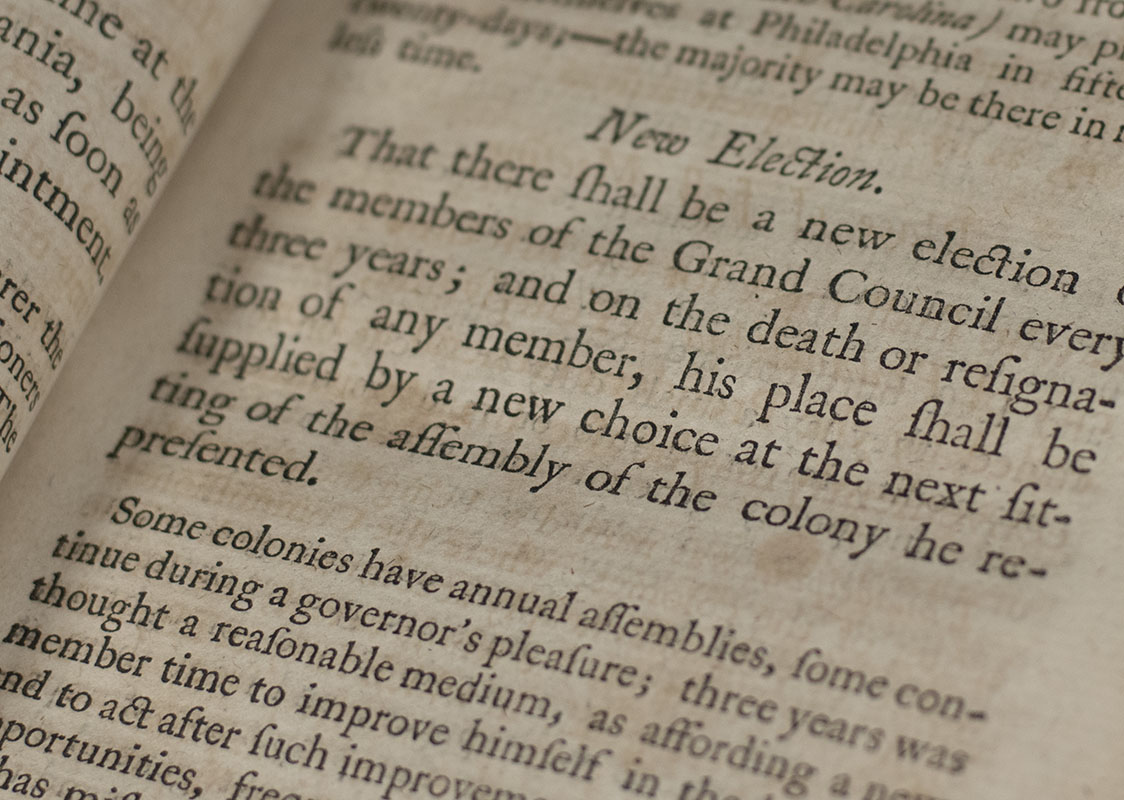 me at the
ania, being
as ſoon as
intment,
rer the
oners
The
Carolina) may
at Philadelphia in
twenty-days;—the majority may be there in
leſs time.
New Election.
That there ſhall be a new election
the members of the Grand Council every
three years; and on the death or reſigna-
tion of any member, his place ſhall be
ſupplied by a new choice at the next ſit-
ting of the aſſembly of the colony he re-
preſented.
Some colonies have annual aſſemblies, ſome con-
tinue during a governor's pleaſure; three years was
thought a reaſonable medium, as affording a new
member time to improve himſelf in the
nd to act after ſuch improveme
portunities,
has